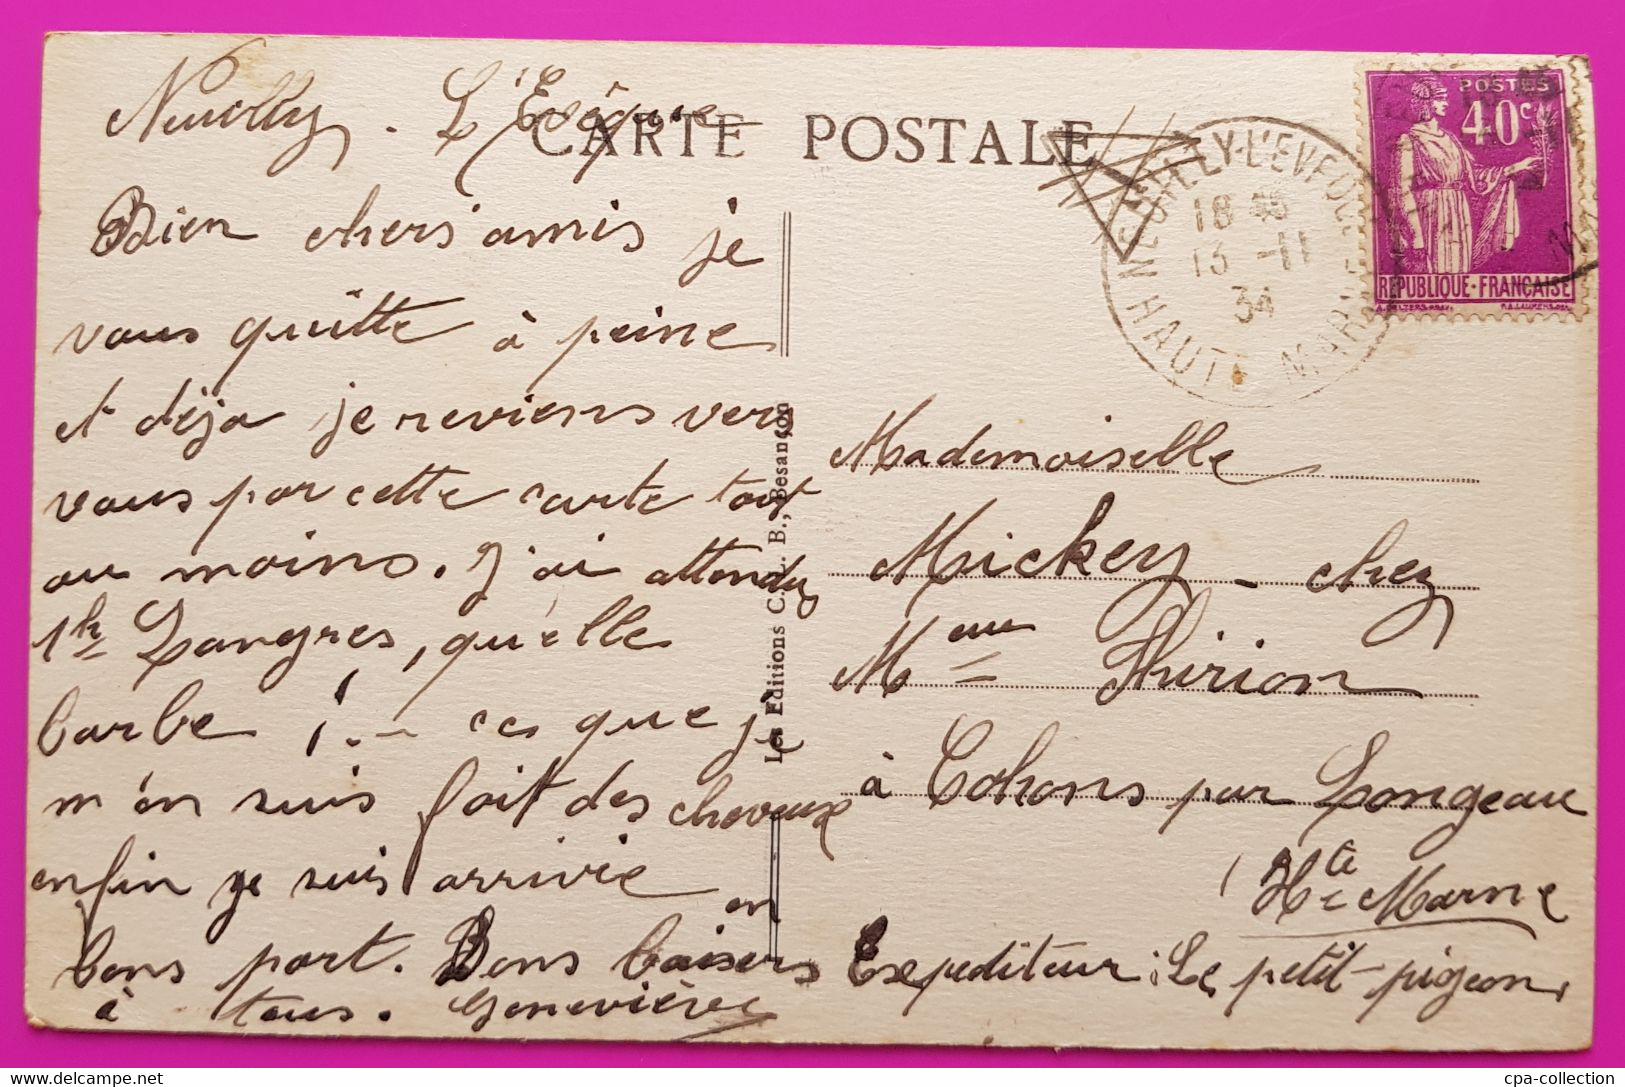 Neuilly. L'Evêque
CARTE POSTALE
Bien chers amis je
vous quitte à peine
et déja je reviens vers
vous par cette carte tout
au moins. J'ai attendu
1h Langres, qu'elle
barbe ! ces que je
m'en suis fait des cheveux
enfin je suis arrivie en
bons port. Bons baisers
à tous. Geneviève
Les Editions C. L. B., Besançon
NEUILLY-L'EVEQUE
18 45
13 -11
34
HAUTE MARNE
POSTES
40c
REPUBLIQUE·FRANÇAISE
Mademoiselle
Mickey - chez
Meme Thirion
à Cohons par Longeau
Hte Marne
Expediteur : Le petit-pigeon
cpa-collection